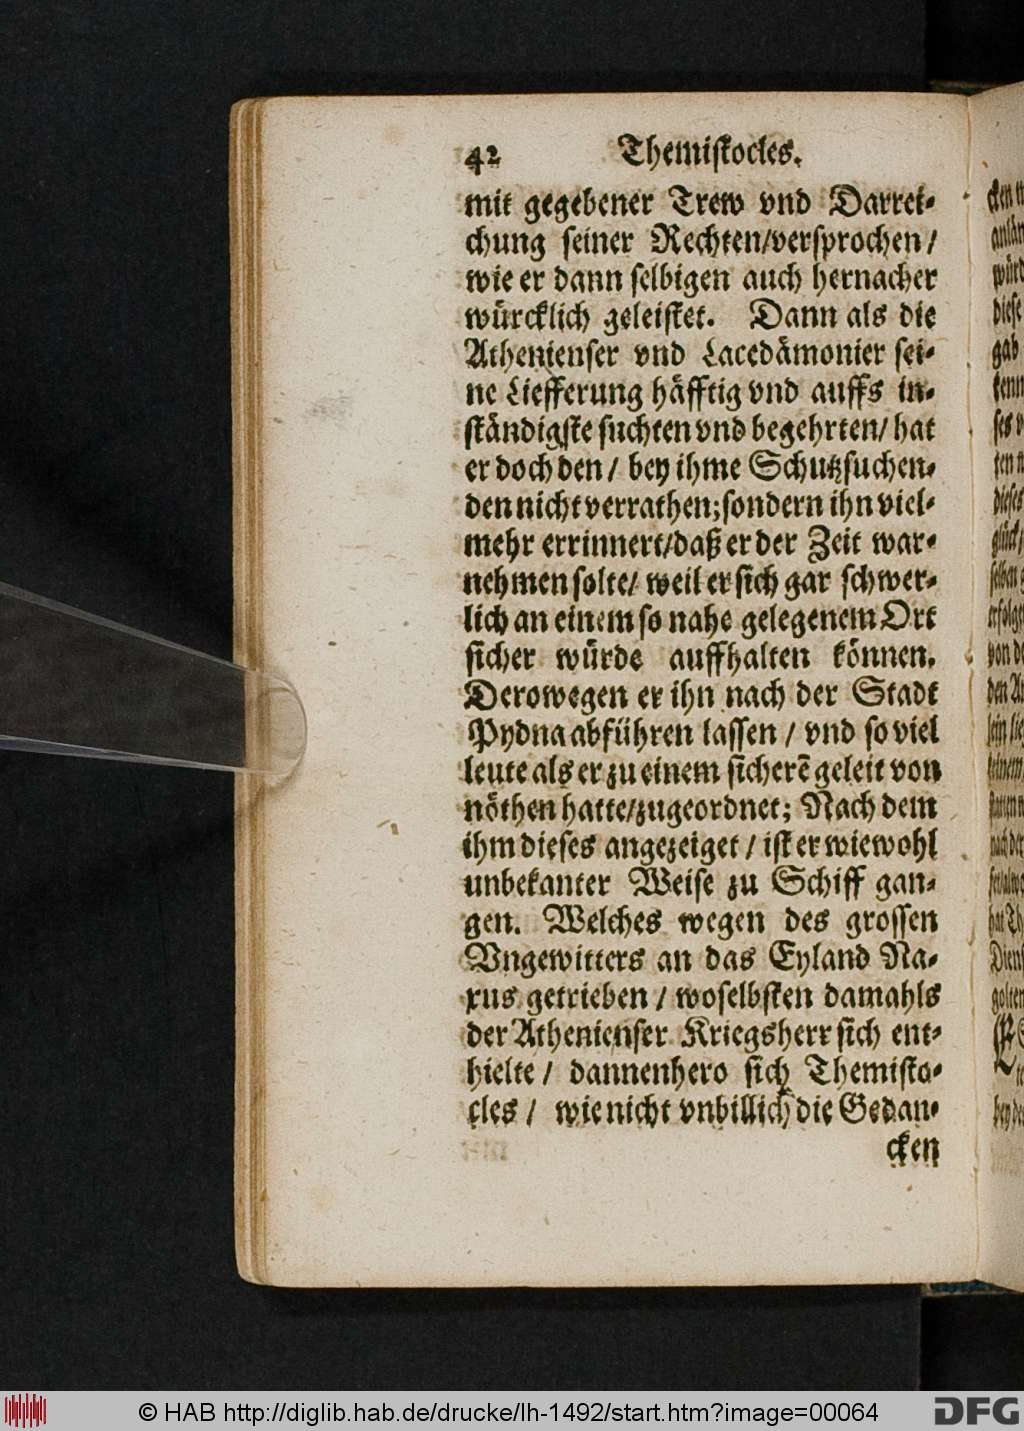 42 Themistocles.
mit gegebener Trew vnd Darrei-
chung seiner Rechten/versprochen/
wie er dann selbigen auch hernacher
würcklich geleistet. Dann als die
Athenienser vnd Lacedämonier sei-
ne Liefferung häfftig vnd auffs in-
ständigste suchten vnd begehrten/ hat
er doch den / bey ihme Schutz suchen-
den nicht verrathen; sondern ihn viel-
mehr errinnert/daß er der Zeit war-
nehmen solte/ weil er sich gar schwer-
lich an einem so nahe gelegenem Ort
sicher würde auffhalten können.
Derowegen er ihn nach der Stadt
Pydna abführen lassen / vnd so viel
leute als er zu einem sicherẽ geleit von
nöthen hatte/zugeordnet; Nach dem
ihm dieses angezeiget / ist er wiewohl
unbekanter Weise zu Schiff gan-
gen. Welches wegen des grossen
Vngewitters an das Eyland Na-
xus getrieben / woselbsten damahls
der Athenienser Kriegsherr sich ent-
hielte / dannenhero sich Themisto-
cles / wie nicht vnbillich die Gedan-
cken
© HAB http://diglib.hab.de/drucke/lh-1492/start.htm?image=00064
DFG